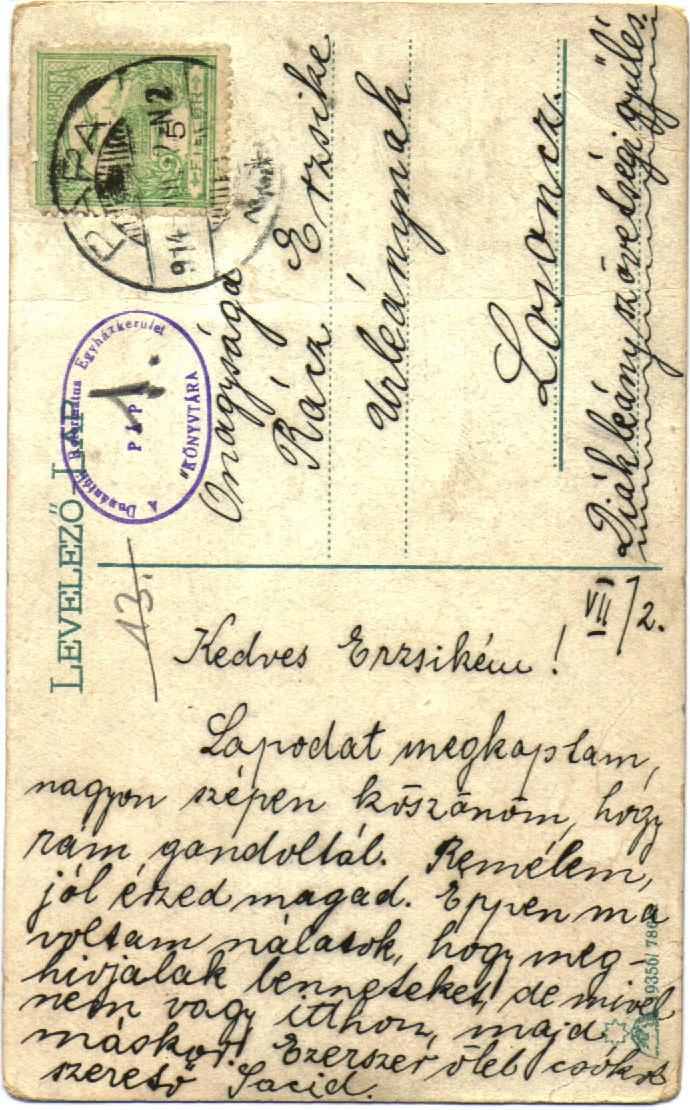 LEVELEZŐ-LAP
MAGYAR KIR. POSTA
5 FILLÉR
PÁPA
914
A Dunántúli Református Egyházkerület
KÖNYVTÁRA
PÁPA
1.
13.
Önagysága
Rácz Erzsike
Urleánynak
Losoncz.
Diákleányszövetségi gyűlés.
VII/2.
Kedves Erzsikém!
Lapodat megkaptam,
nagyon szépen köszönöm, hogy
rám gondoltál. Remélem,
jól érzed magad. Éppen ma
voltam nálatok, hogy meg-
hivjalak benneteket, de mivel
nem vagy itthon, majd
máskor! Ezerszer ölel csókol
szerető